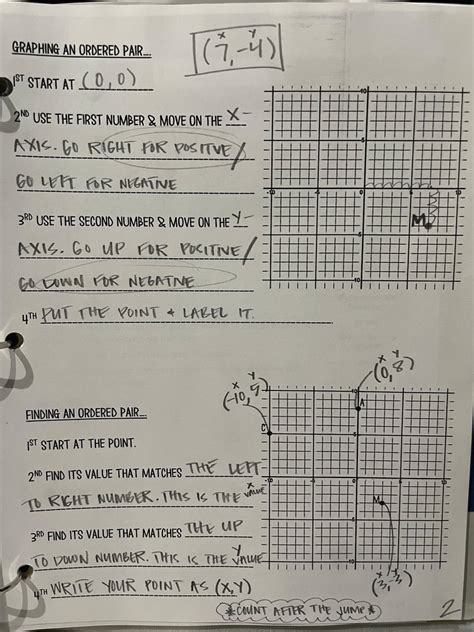 x y
(7,-4)
GRAPHING AN ORDERED PAIR...
1ST START AT (0,0)
2ND USE THE FIRST NUMBER & MOVE ON THE X-
AXIS. GO RIGHT FOR POSITIVE/
GO LEFT FOR NEGATIVE
3RD USE THE SECOND NUMBER & MOVE ON THE Y-
AXIS. GO UP FOR POSITIVE/
GO DOWN FOR NEGATIVE
4TH PUT THE POINT & LABEL IT.
M
x y
(0,8)
x y
FINDING AN ORDERED PAIR...
A
C
1ST START AT THE POINT.
2ND FIND ITS VALUE THAT MATCHES THE LEFT
TO RIGHT NUMBER. THIS IS THE X VALUE
M
3RD FIND ITS VALUE THAT MATCHES THE UP
TO DOWN NUMBER. THIS IS THE Y VALUE
4TH WRITE YOUR POINT AS (X,Y)
x y
*COUNT AFTER THE JUMP*
2